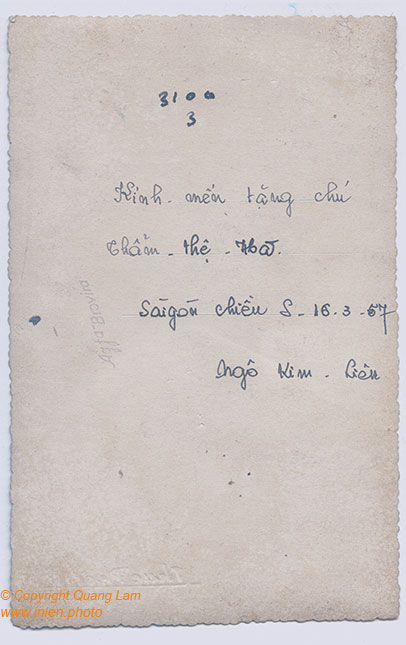 3100
3
Kính mến tặng chú
Thẩm - Thệ - Hà.
Sàigòn chiều S - 16.3.57
Ngô Kim - Liên
© Copyright Quang Lam
www.mien.photo